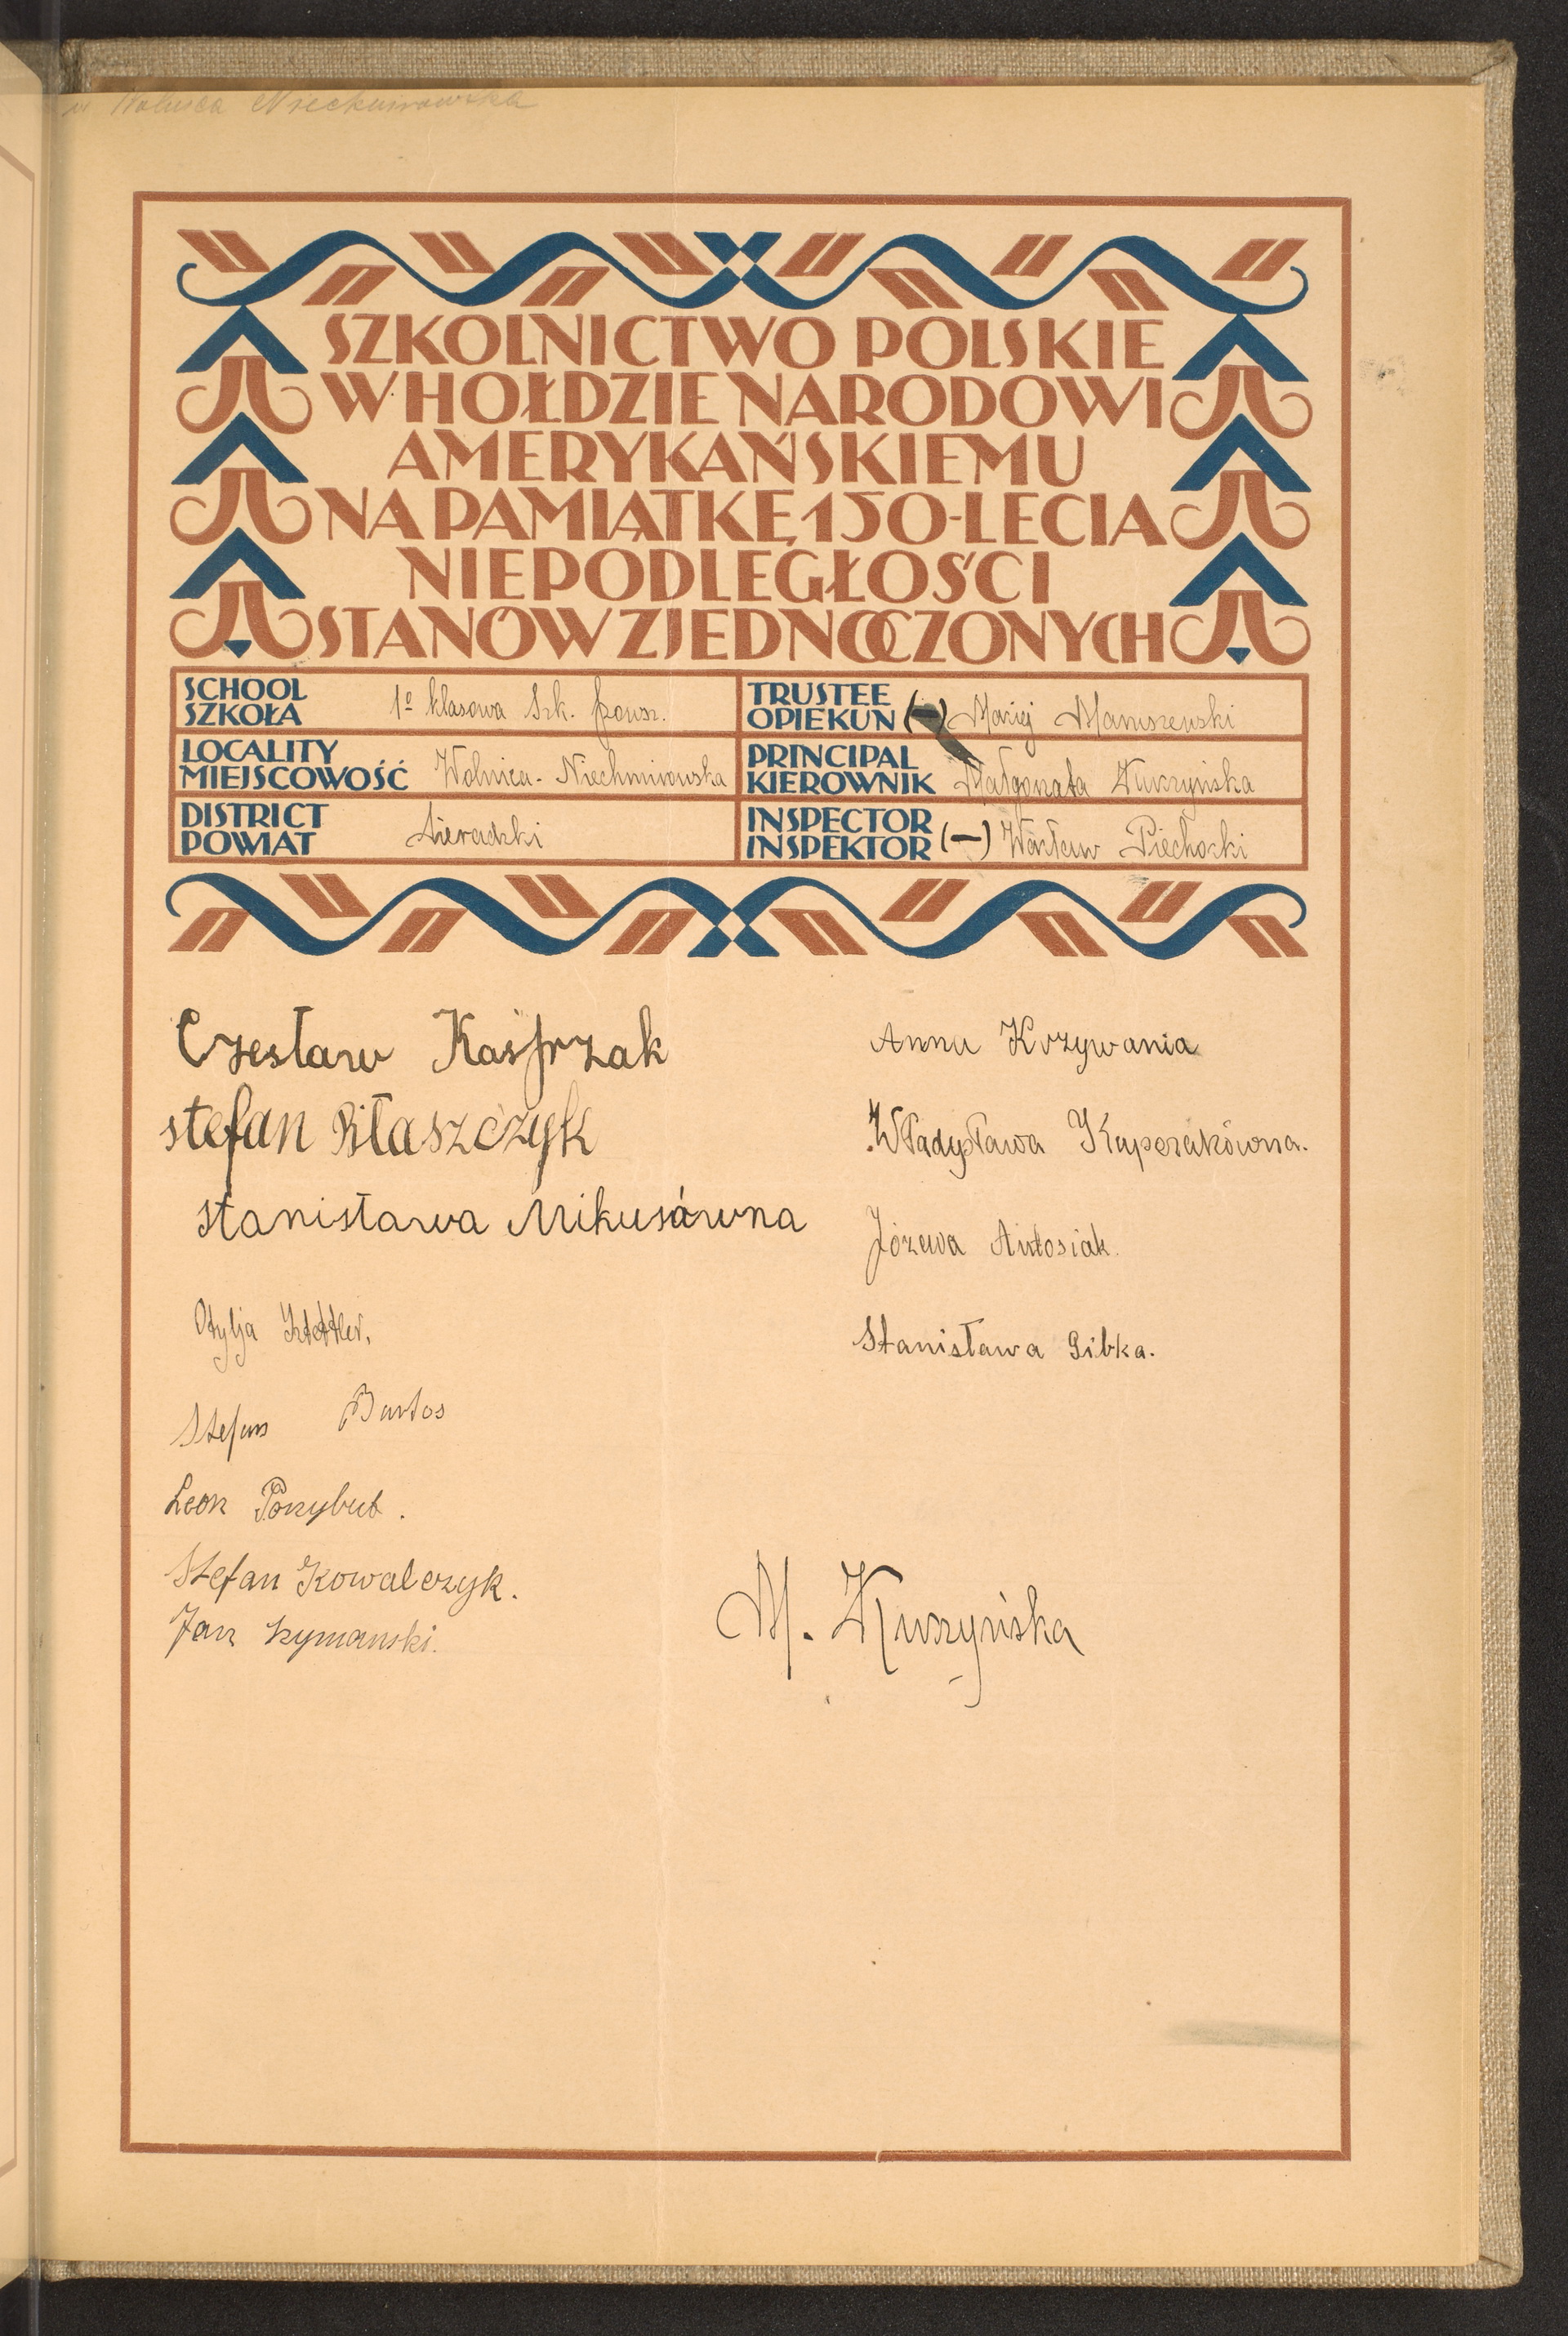 w Wolnica Niechmirowska
SZKOLNICTWO POLSKIE
W HOŁDZIE NARODOWI
AMERYKAŃSKIEMU
NA PAMIĄTKĘ 150-LECIA
NIEPODLEGŁOŚCI
STANÓW ZJEDNOCZONYCH
SCHOOL
SZKOŁA 1º klasowa Szk. powsz.
LOCALITY
MIEJSCOWOŚĆ Wolnica-Niechmirowska
DISTRICT
POWIAT Sieradzki
TRUSTEE
OPIEKUN (—) Maciej
PRINCIPAL
KIEROWNIK Małgorzata Kurzyńska
INSPECTOR
INSPEKTOR (—) Wacław Piechocki
Czesław Kasprzak
stefan Błaszczyk
stanisława Mikusówna
Otylja
Stefan Bartos
Leon Ponybut.
Stefan Kowalczyk.
Jan szymanski.
Anna Krzywania
Władysława Kaperakówna.
Józewa Antosiak.
Stanisława Gibka.
M. Kurzyńska